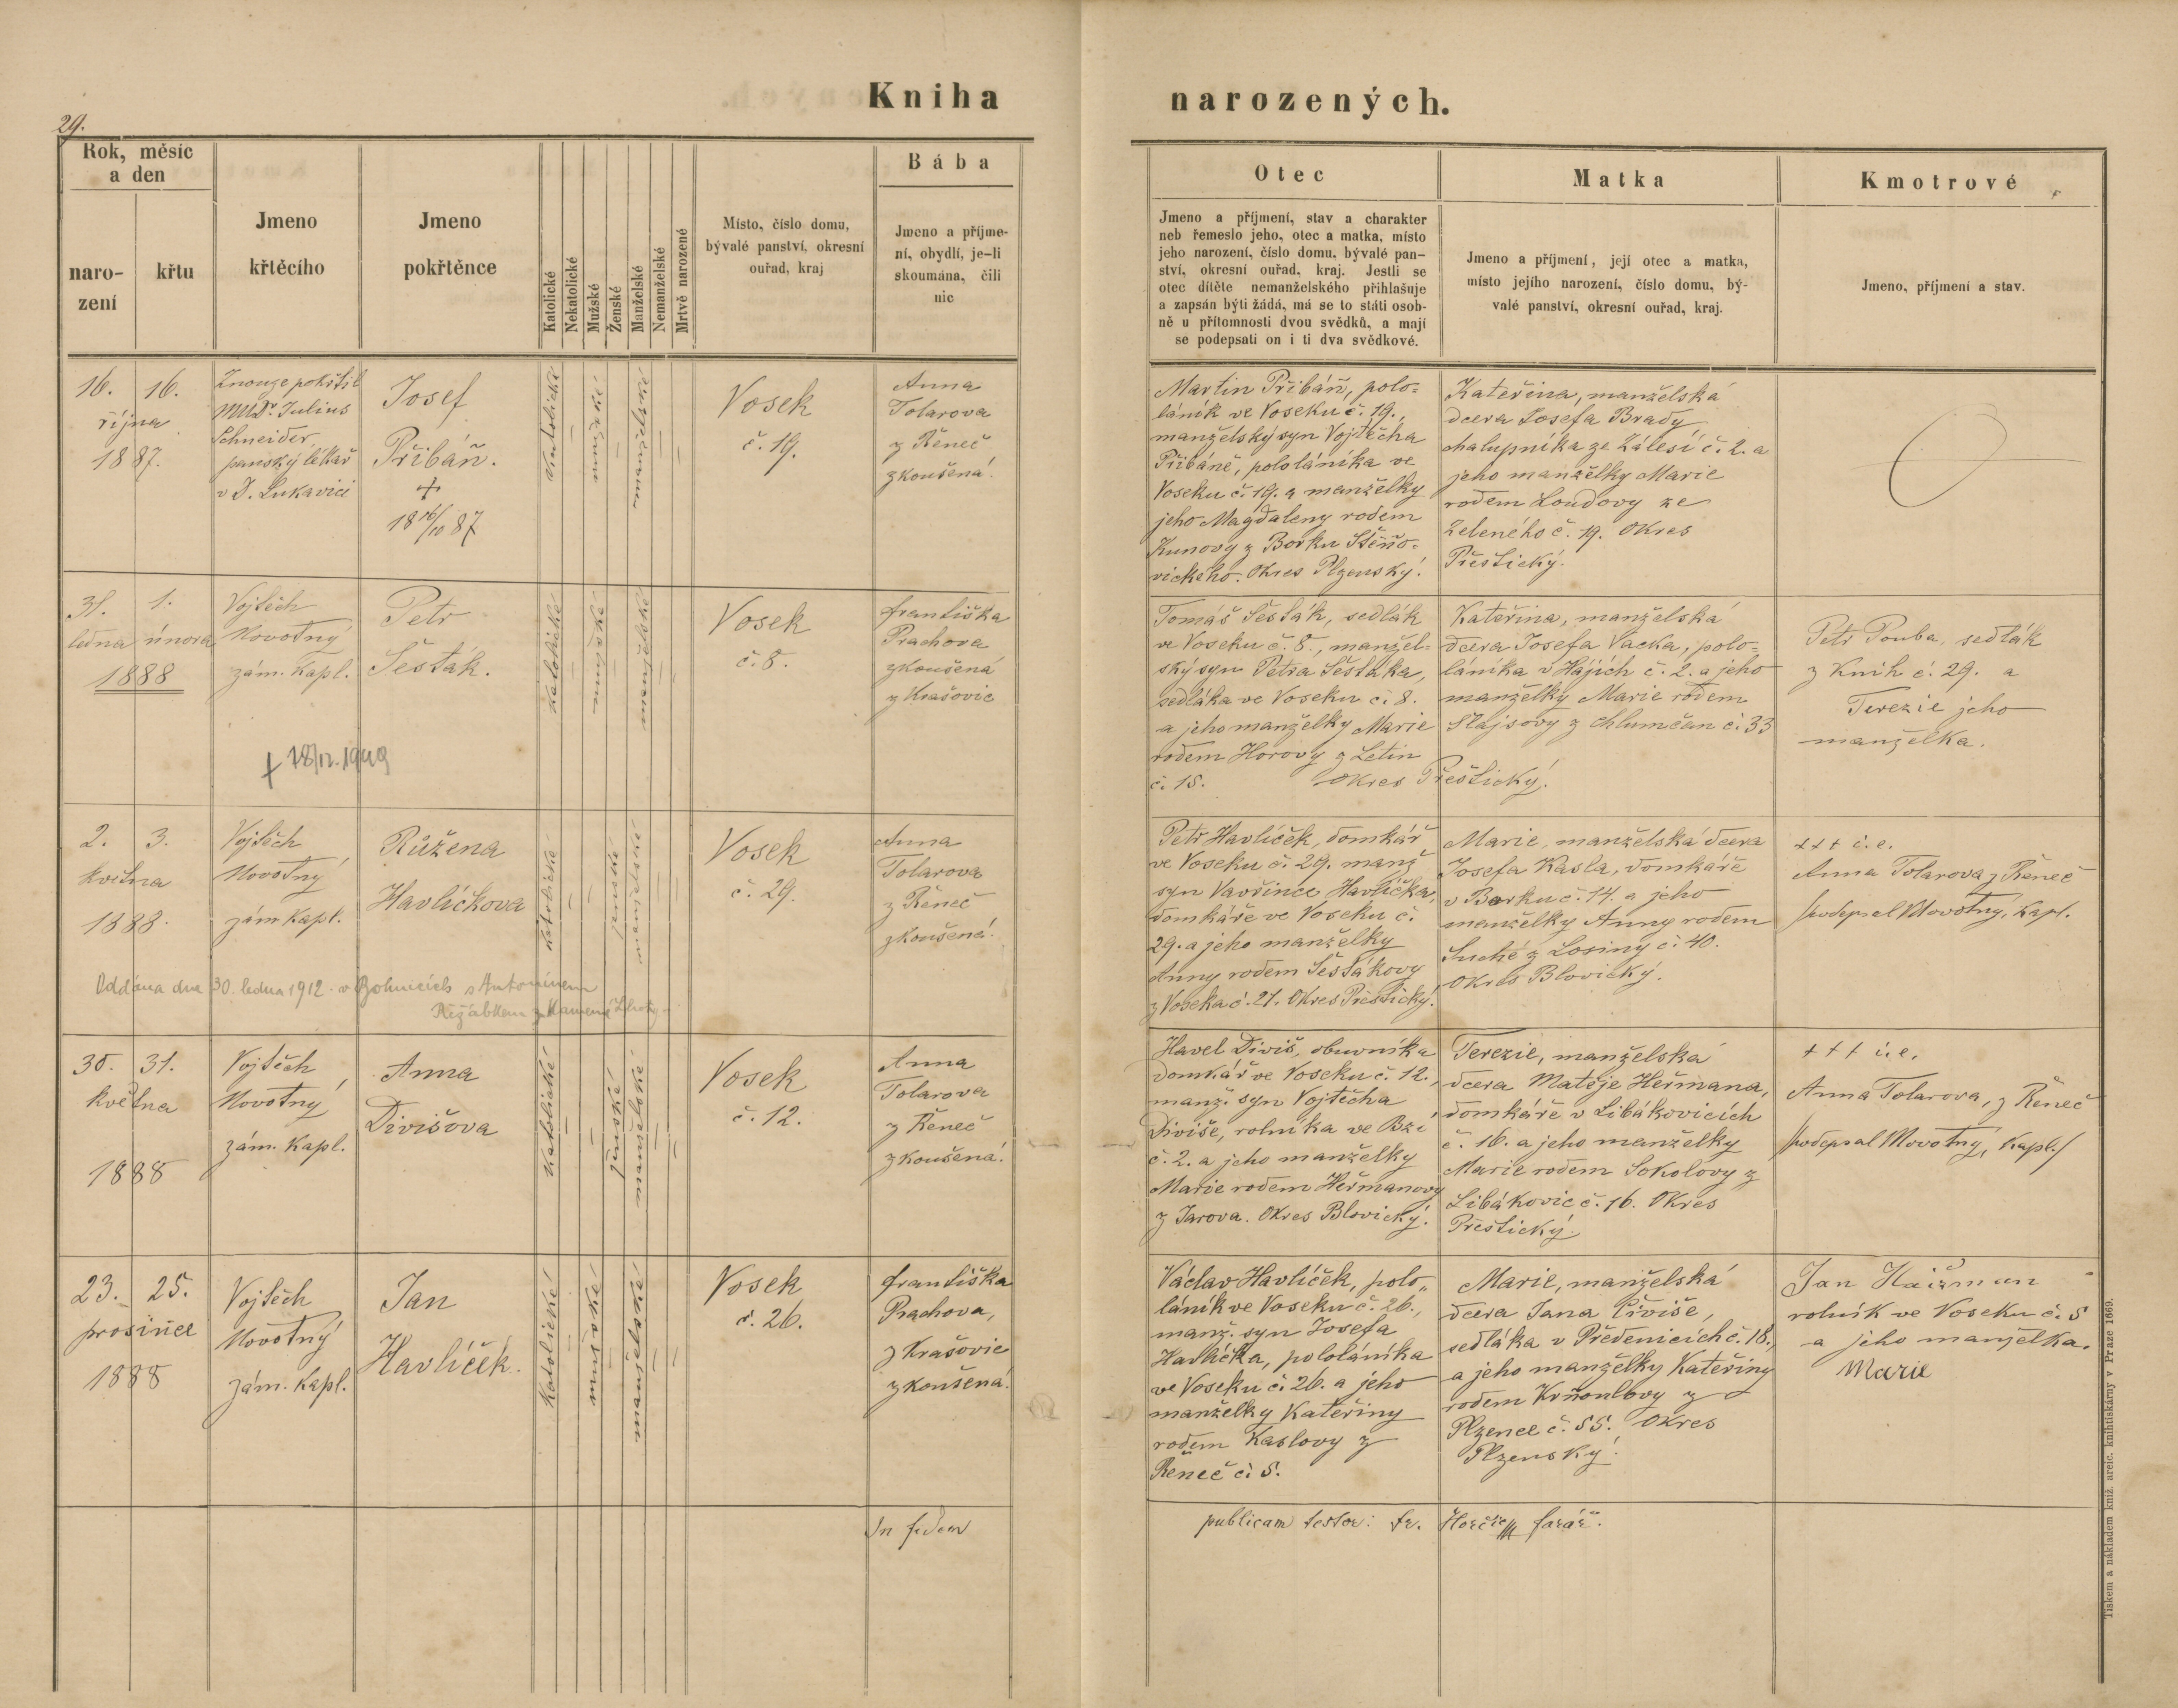 Kniha narozených.
29.
Rok, měsíc
a den
naro-
zení
křtu
Jmeno
křtěcího
Jmeno
pokřtěnce
Katolické
Nekatolické
Mužské
Ženské
Manželské
Nemanželské
Mrtvě narozené
Místo, číslo domu,
bývalé panství, okresní
ouřad, kraj
Bába
Jmeno a příjme-
ní, obydlí, je-li
skoumána, čili
nic
Otec
Jmeno a příjmení, stav a charakter
neb řemeslo jeho, otec a matka, místo
jeho narození, číslo domu, bývalé pan-
ství, okresní ouřad, kraj. Jestli se
otec dítěte nemanželského přihlašuje
a zapsán býti žádá, má se to státi osob-
ně u přítomnosti dvou svědků, a mají
se podepsati on i ti dva svědkové.
Matka
Jmeno a příjmení, její otec a matka,
místo jejího narození, číslo domu, bý-
valé panství, okresní ouřad, kraj.
Kmotrové
Jmeno, příjmení a stav.
16. 16.
října
1887.
Znouze pokřtil
MUDr. Julius
Schneider
panský lékař
v D. Lukavici
Josef
Přibáň.
+
18 16/10 87
katolické
mužské
manželské
Vosek
č. 19.
Anna
Tolarova
z Řeneč
zkoušená.
Martin Přibáň, polo-
láník ve Voseku č. 19.,
manželský syn Vojtěcha
Přibáně, pololáníka ve
Voseku č. 19. a manželky
jeho Magdaleny rodem
Kunovy z Borku Štěňo-
vického. Okres Plzenský.
Kateřina, manželská
dcera Josefa Brady
chalupníka ze Zálesí č. 2. a
jeho manželky Marie
rodem Loudovy ze
Zeleného č. 19. Okres
Přeštický.
31. 1.
ledna února
1888
Vojtěch
Novotný
zám. kapl.
Petr
Šesták.
katolické
mužské
manželské
Vosek
č. 8.
Františka
Prachova
zkoušená
z Krašovic
Tomáš Šesták, sedlák
ve Voseku č. 8., manžel-
ský syn Petra Šestáka,
sedláka ve Voseku č. 8.
a jeho manželky Marie
rodem Horovy z Letin
č. 15. Okres Přeštický.
Kateřina, manželská
dcera Josefa Vacka, polo-
láníka v Hájích č. 2. a jeho
manželky Marie rodem
Šlajsovy z Chlumčan č. 33
Petr Pouba, sedlák
z Knih č. 29. a
Terezie jeho
manželka.
+ 18/12. 1949
2. 3.
května
1888.
Vojtěch
Novotný
zám. kapl.
Růžena
Havlíčkova
katolické
ženské
manželské
Vosek
č. 29.
Anna
Tolarova
z Řeneč
zkoušená.
Petr Havlíček, domkář
ve Voseku č. 29. manž.
syn Vavřince Havlíčka,
domkáře ve Voseku č.
29. a jeho manželky
Anny rodem Šestákovy
z Voseka č. 21. Okres Přeštický.
Marie, manželská dcera
Josefa Kasla, domkáře
v Borku č. 14. a jeho
manželky Anny rodem
Suché z Losiny č. 40.
Okres Blovický.
+++ i. e.
Anna Tolarova z Řeneč
/podepsal Novotný, kapl.
Oddána dne 30. ledna 1912 v Bohnicích s Antonínem
Řežábkem z Kamené Lhoty
30. 31.
května
1888
Vojtěch
Novotný
zám. kapl.
Anna
Divišova
katolické
ženské
manželské
Vosek
č. 12.
Anna
Tolarova
z Řeneč
zkoušená.
Havel Diviš, obuvníka
domkář ve Voseku č. 12.,
manž. syn Vojtěcha
Diviše, rolníka ve Bzí
č. 2. a jeho manželky
Marie rodem Heřmanovy
z Jarova. Okres Blovický.
Terezie, manželská
dcera Matěje Heřmana,
domkáře v Libákovicích
č. 16. a jeho manželky
Marie rodem Sokolovy z
Libákovic č. 16. Okres
Přeštický.
+++ i. e.
Anna Tolarova, z Řeneč
/podepsal Novotný, kapl./
23. 25.
prosince
1888
Vojtěch
Novotný
zám. kapl.
Jan
Havlíček.
katolické
mužské
manželské
Vosek
č. 26.
Františka
Prachova,
z Krašovic
zkoušená.
Václav Havlíček, polo-
láník ve Voseku č. 26.,
manž. syn Josefa
Havlíčka, pololáníka
ve Voseku č. 26. a jeho
manželky Kateřiny
rodem Kaslovy z
Řeneč č. 5.
Marie, manželská
dcera Jana Čiviše,
sedláka v Předenicích č. 18.,
a jeho manželky Kateřiny
rodem Krňoulovy z
Plzence č. 55. Okres
Plzenský.
Jan Haišman
rolník ve Voseku č. 5
a jeho manželka.
Marie
In fidem publicam testor: Fr. farář.
Tiskem a nákladem kníž. arcib. knihtiskárny v Praze 1669.